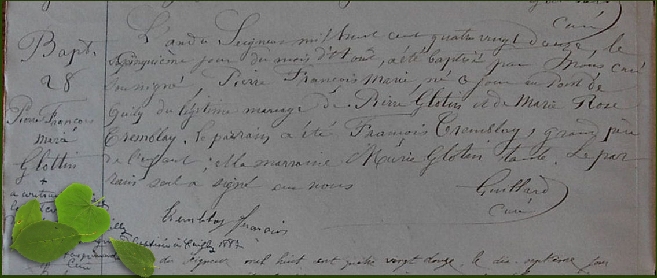 Curé
Bapt.
28
Pierre François
Marie
Glottin
+
L'an du Seigneur mil huit cent quatre vingt douze, le
jour du mois d'Août, a été baptisé par Nous curé
soussigné, Pierre François Marie, né ce jour au Pont de
Guily du légitime mariage de Pierre Glotin et de Marie Rose
Tremblay. le parrain a été François Tremblay, grand père
de l'enfant et la marraine Marie Glotin tante. Le par
rain seul a signé avec nous
Guillard
Curé
Tremblay françois
1887
du Seigneur mil huit cent quatre vingt douze, le dix septième jour